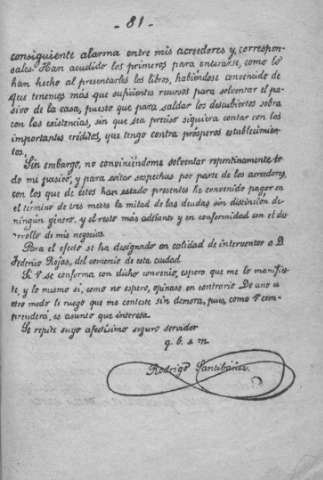 - 81 -
consiguiente alarma entre mis acreedores y, correspon-
sales. Han acudido los primeros para enterarse, como lo
han hecho al presentarles los libros, habiéndose convencido de
que tenemos más que suficientes recursos para solventar el pa-
sivo de la casa, puesto que para saldar los descubiertos sobra
con las existencias, sin que sea preciso siquiera contar con los
importantes créditos, que tengo contra prósperos establecimien-
tos.
Sin embargo, no conviniéndome solventar repentinamente to-
do mi pasivo, y para evitar sospechas por parte de los acreedores,
con los que de éstos han estado presentes he convenido pagar en
el término de tres meses la mitad de las deudas sin distinción de
ningún género, y el resto más adelante y en conformidad con el de-
sarrollo de mis negocios.
Para el efecto se ha designado en calidad de interventor a D.
Federico Rojas, del comercio de esta ciudad.
Si V. se conforma con dicho convenio, espero que me lo manifies-
te, y lo mismo si, como no espero, opinase en contrario. De uno u
otro modo le ruego que me conteste sin demora, pues, como V. com-
prenderá, es asunto que interesa.
Se repite suyo afectísimo seguro servidor
q. b. s. m.
Rodrigo Santibáñez